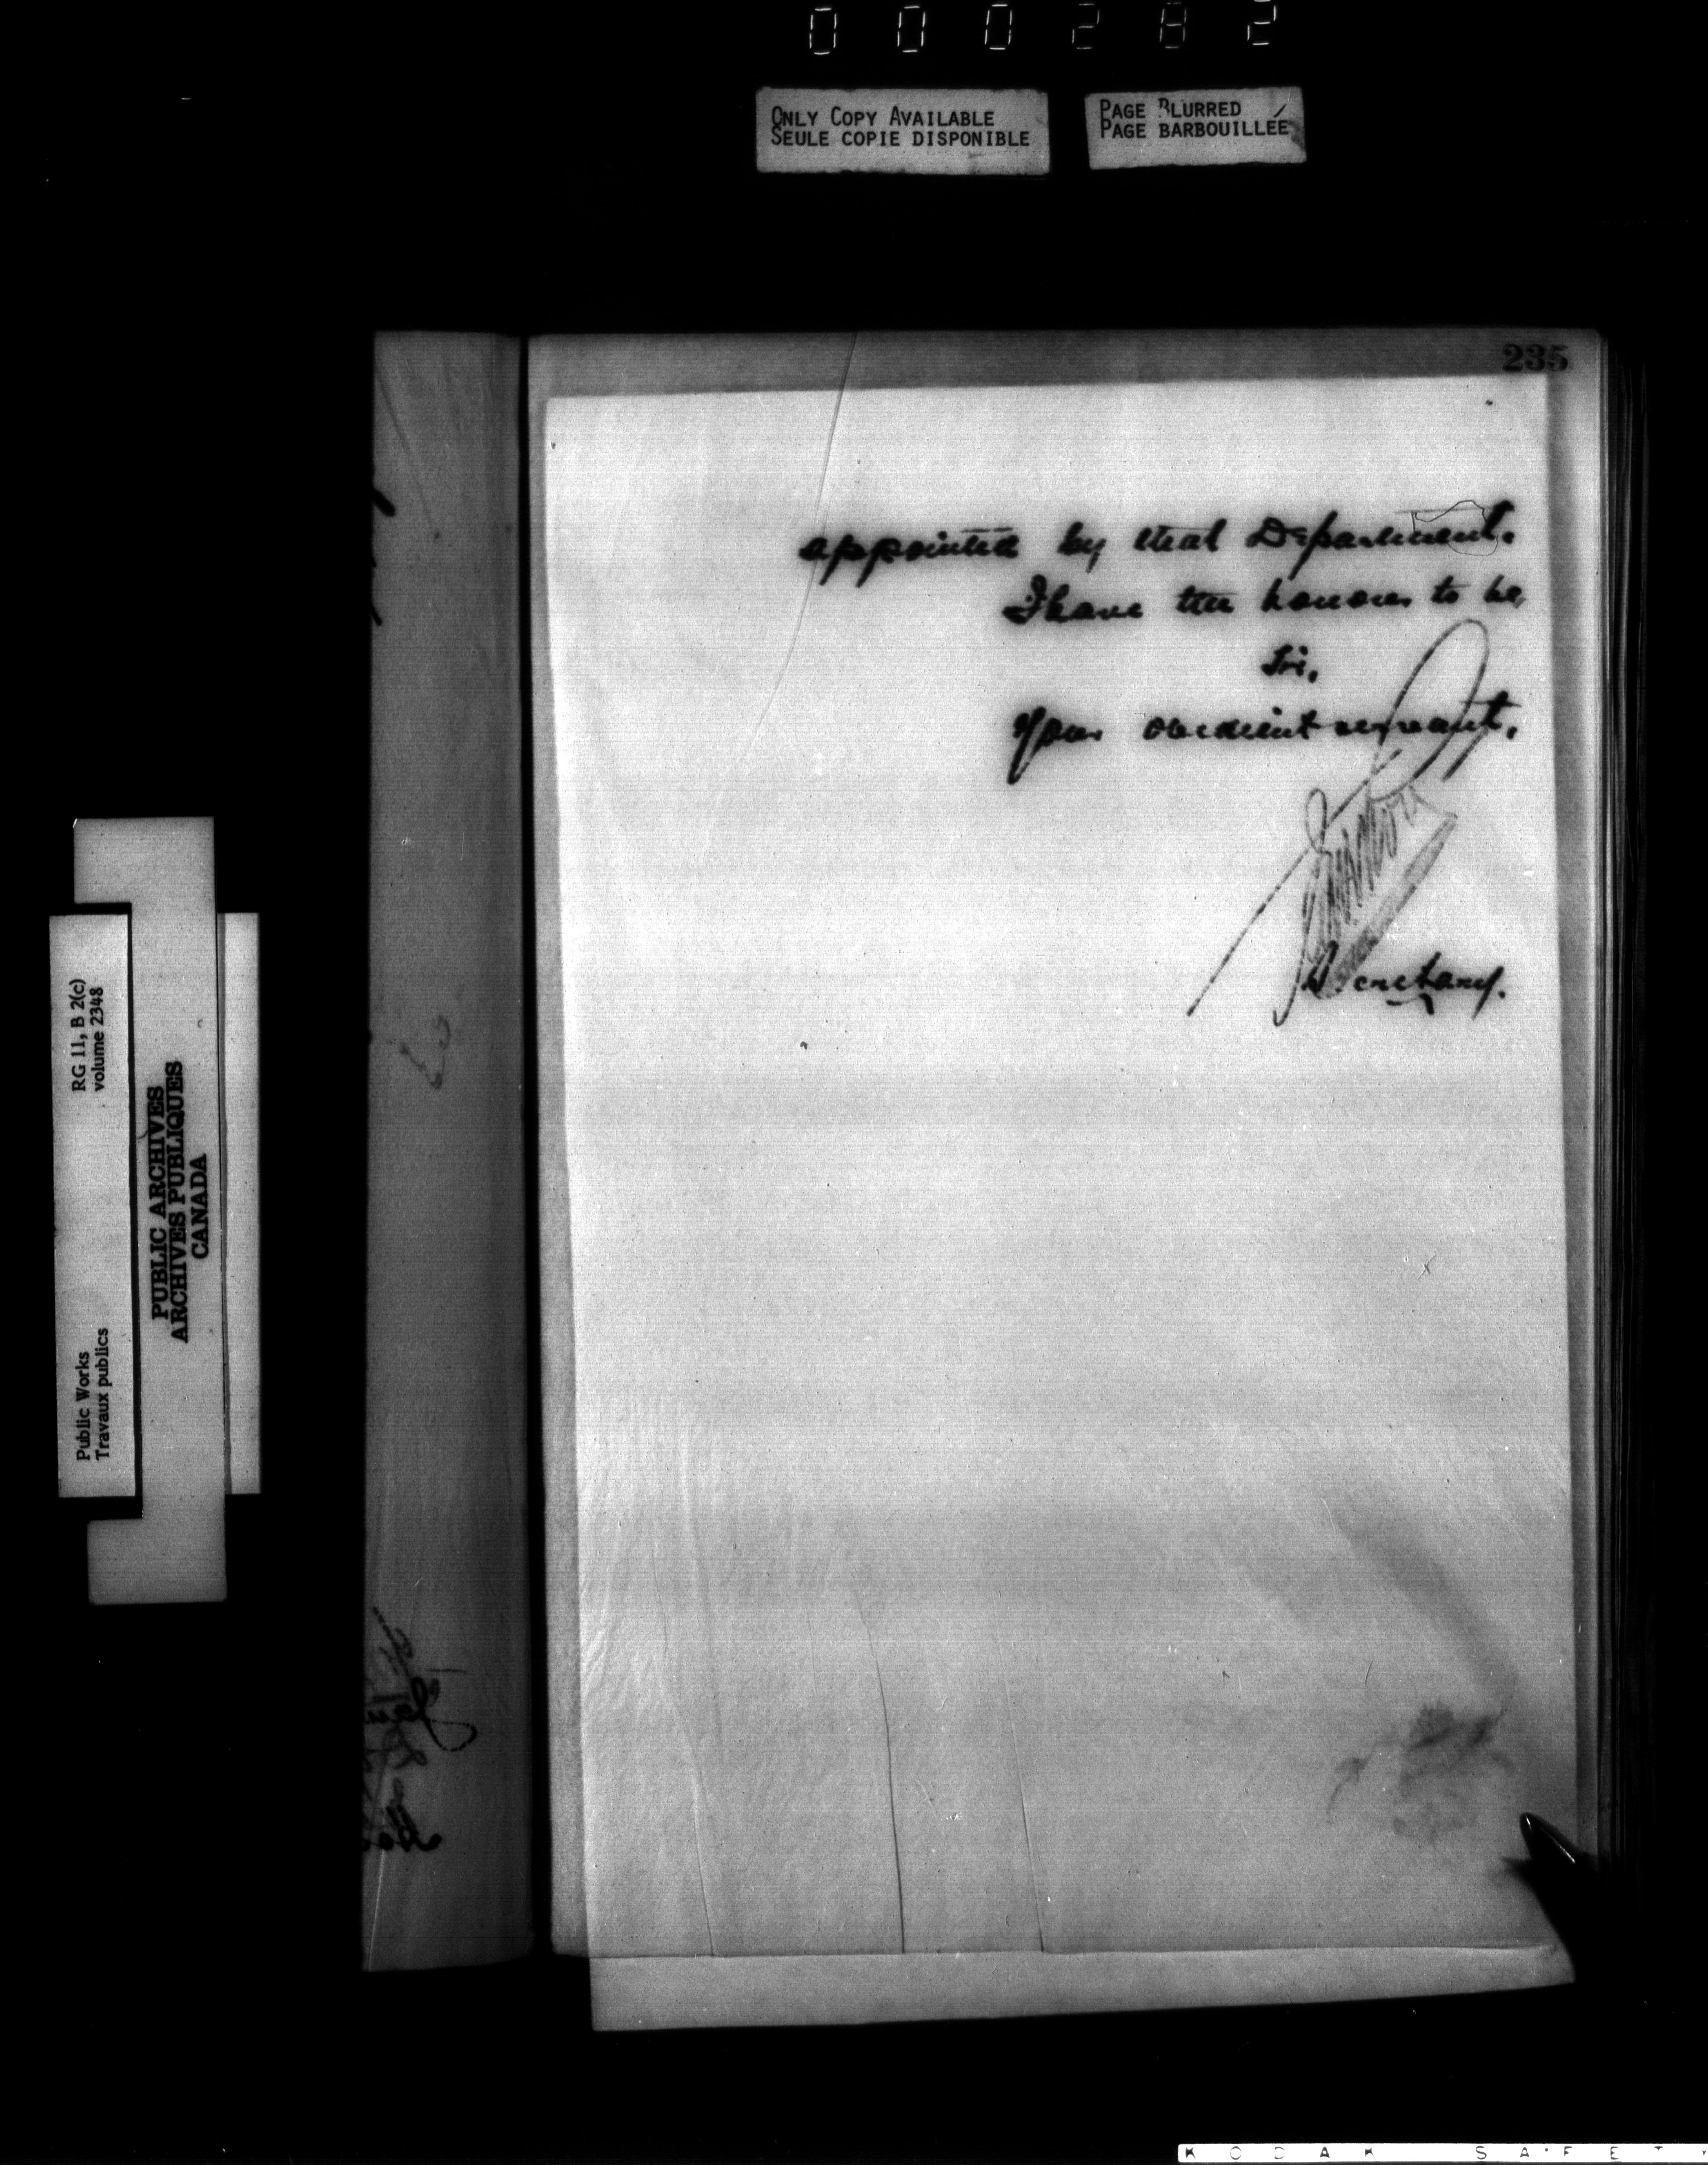 000282
ONLY COPY AVAILABLE
SEULE COPIE DISPONIBLE
PAGE BLURRED
PAGE BARBOUILLÉE
235
appointed by that Department.
I have the honour to be,
Sir,
Your obedient servant,
Secretary.
RG 11, B 2(c)
volume 2348
Public Works
Travaux publics
PUBLIC ARCHIVES
ARCHIVES PUBLIQUES
CANADA
KODAK SAFETY